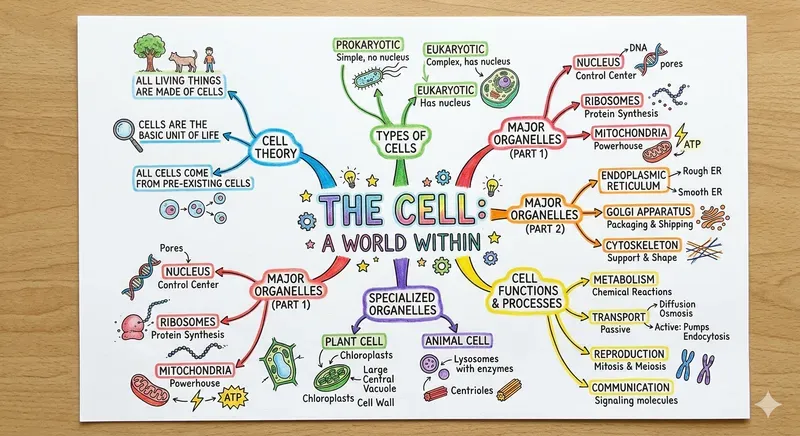 THE CELL:
A WORLD WITHIN
CELL
THEORY
ALL LIVING THINGS
ARE MADE OF CELLS
CELLS ARE THE
BASIC UNIT OF LIFE
ALL CELLS COME
FROM PRE-EXISTING CELLS
TYPES OF
CELLS
PROKARYOTIC
Simple, no nucleus
EUKARYOTIC
Complex, has nucleus
EUKARYOTIC
Has nucleus
MAJOR
ORGANELLES
(PART 1)
NUCLEUS
Control Center
DNA
pores
RIBOSOMES
Protein Synthesis
MITOCHONDRIA
Powerhouse
ATP
MAJOR
ORGANELLES
(PART 2)
ENDOPLASMIC
RETICULUM
Rough ER
Smooth ER
GOLGI APPARATUS
Packaging & Shipping
CYTOSKELETON
Support & Shape
CELL
FUNCTIONS
& PROCESSES
METABOLISM
Chemical Reactions
TRANSPORT
Passive
Diffusion
Osmosis
Active: Pumps
Endocytosis
REPRODUCTION
Mitosis & Meiosis
COMMUNICATION
Signaling molecules
SPECIALIZED
ORGANELLES
PLANT CELL
Chloroplasts
Large
Central
Vacuole
Chloroplasts
Cell Wall
ANIMAL CELL
Lysosomes
with enzymes
Centrioles
MAJOR
ORGANELLES
(PART 1)
Pores
NUCLEUS
Control Center
RIBOSOMES
Protein Synthesis
MITOCHONDRIA
Powerhouse
ATP